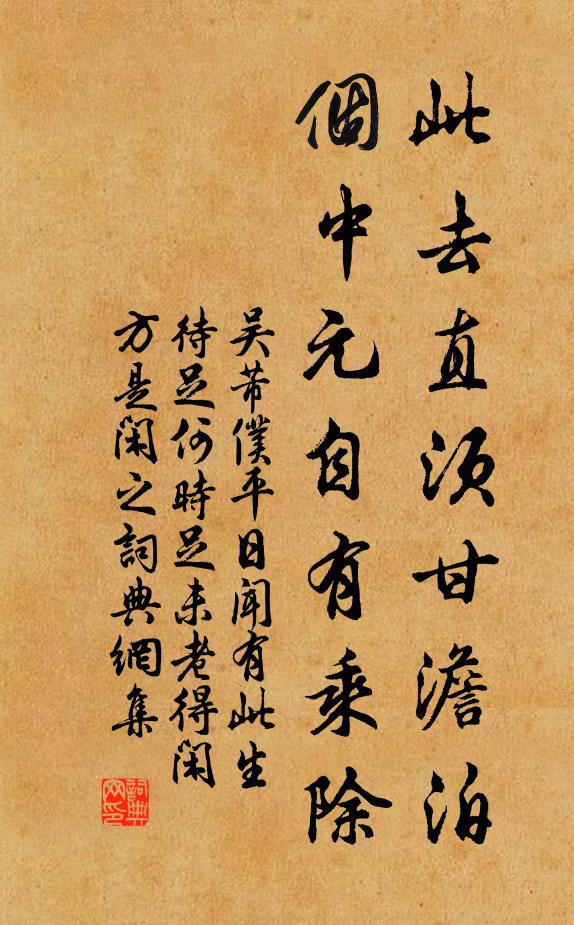 此去直須甘澹泊
個中元自有乘除
吳芾僕平日聞有此生
待足何時足未老得閑
方是閑之詞典網集
詞典
网印